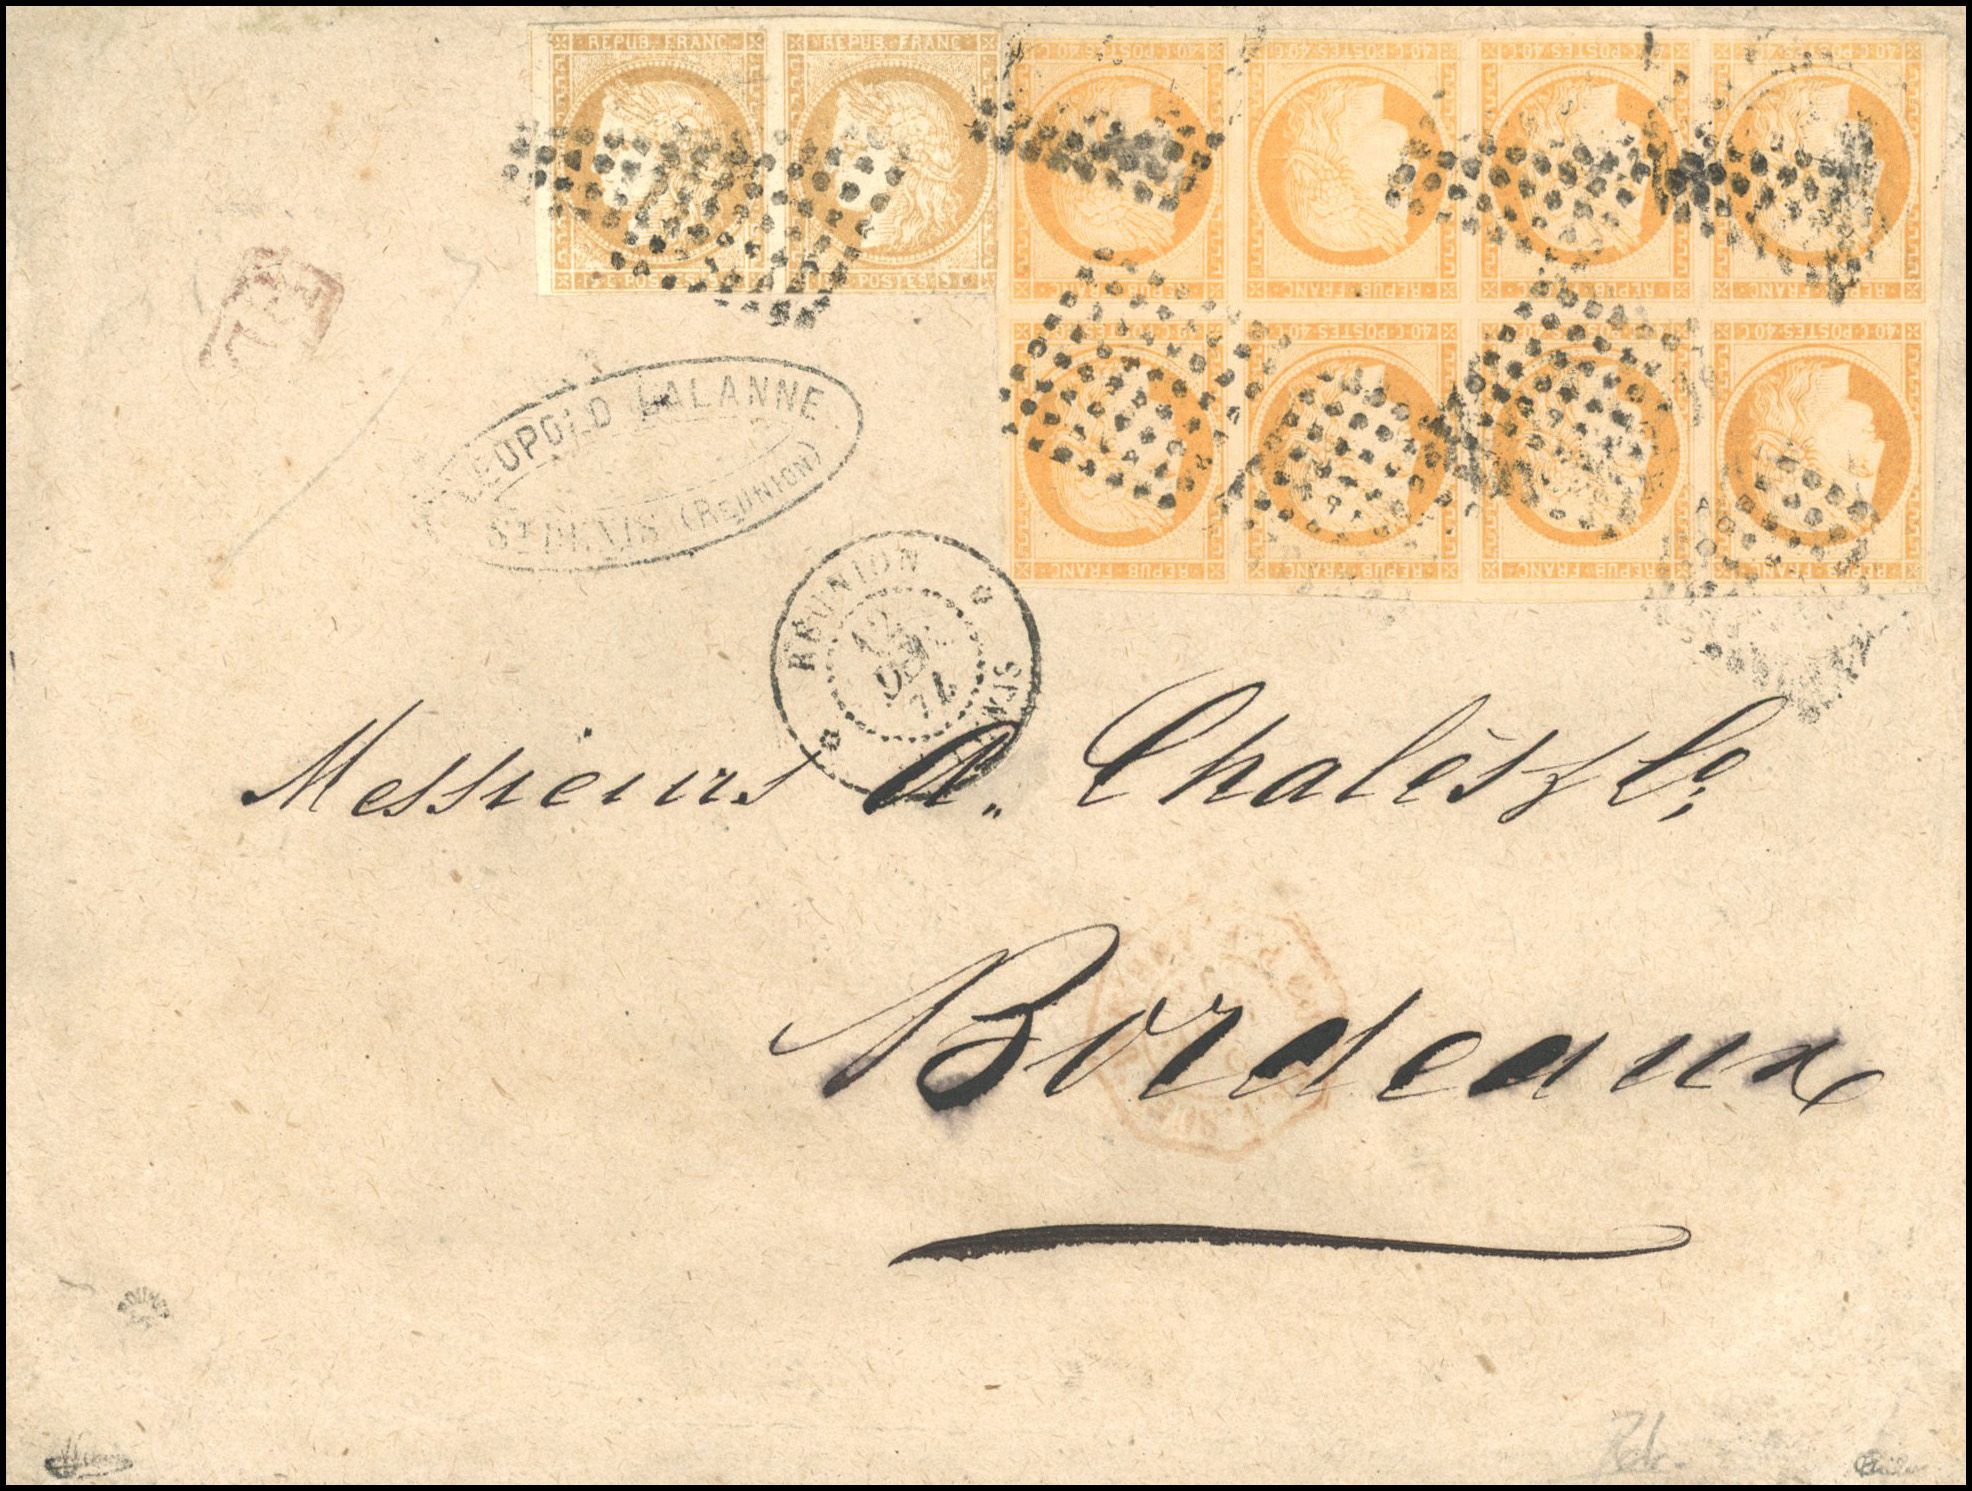 REPUB · FRANC REPUB · FRANC
15 C. POSTES 15 C. POSTES 15 C.
40 C POSTES 40 C 40 C POSTES 40 C 40 C POSTES 40 C 40 C POSTES 40 C
REPUB · FRANC REPUB · FRANC REPUB · FRANC REPUB · FRANC
40 C POSTES 40 C 40 C POSTES 40 C 40 C POSTES 40 C 40 C POSTES 40 C
REPUB · FRANC REPUB · FRANC REPUB · FRANC REPUB · FRANC
LEOPOLD LALANNE
ST DENIS (REUNION)
RÉUNION
12
Messieurs A. Chalès & Co
Bordeaux